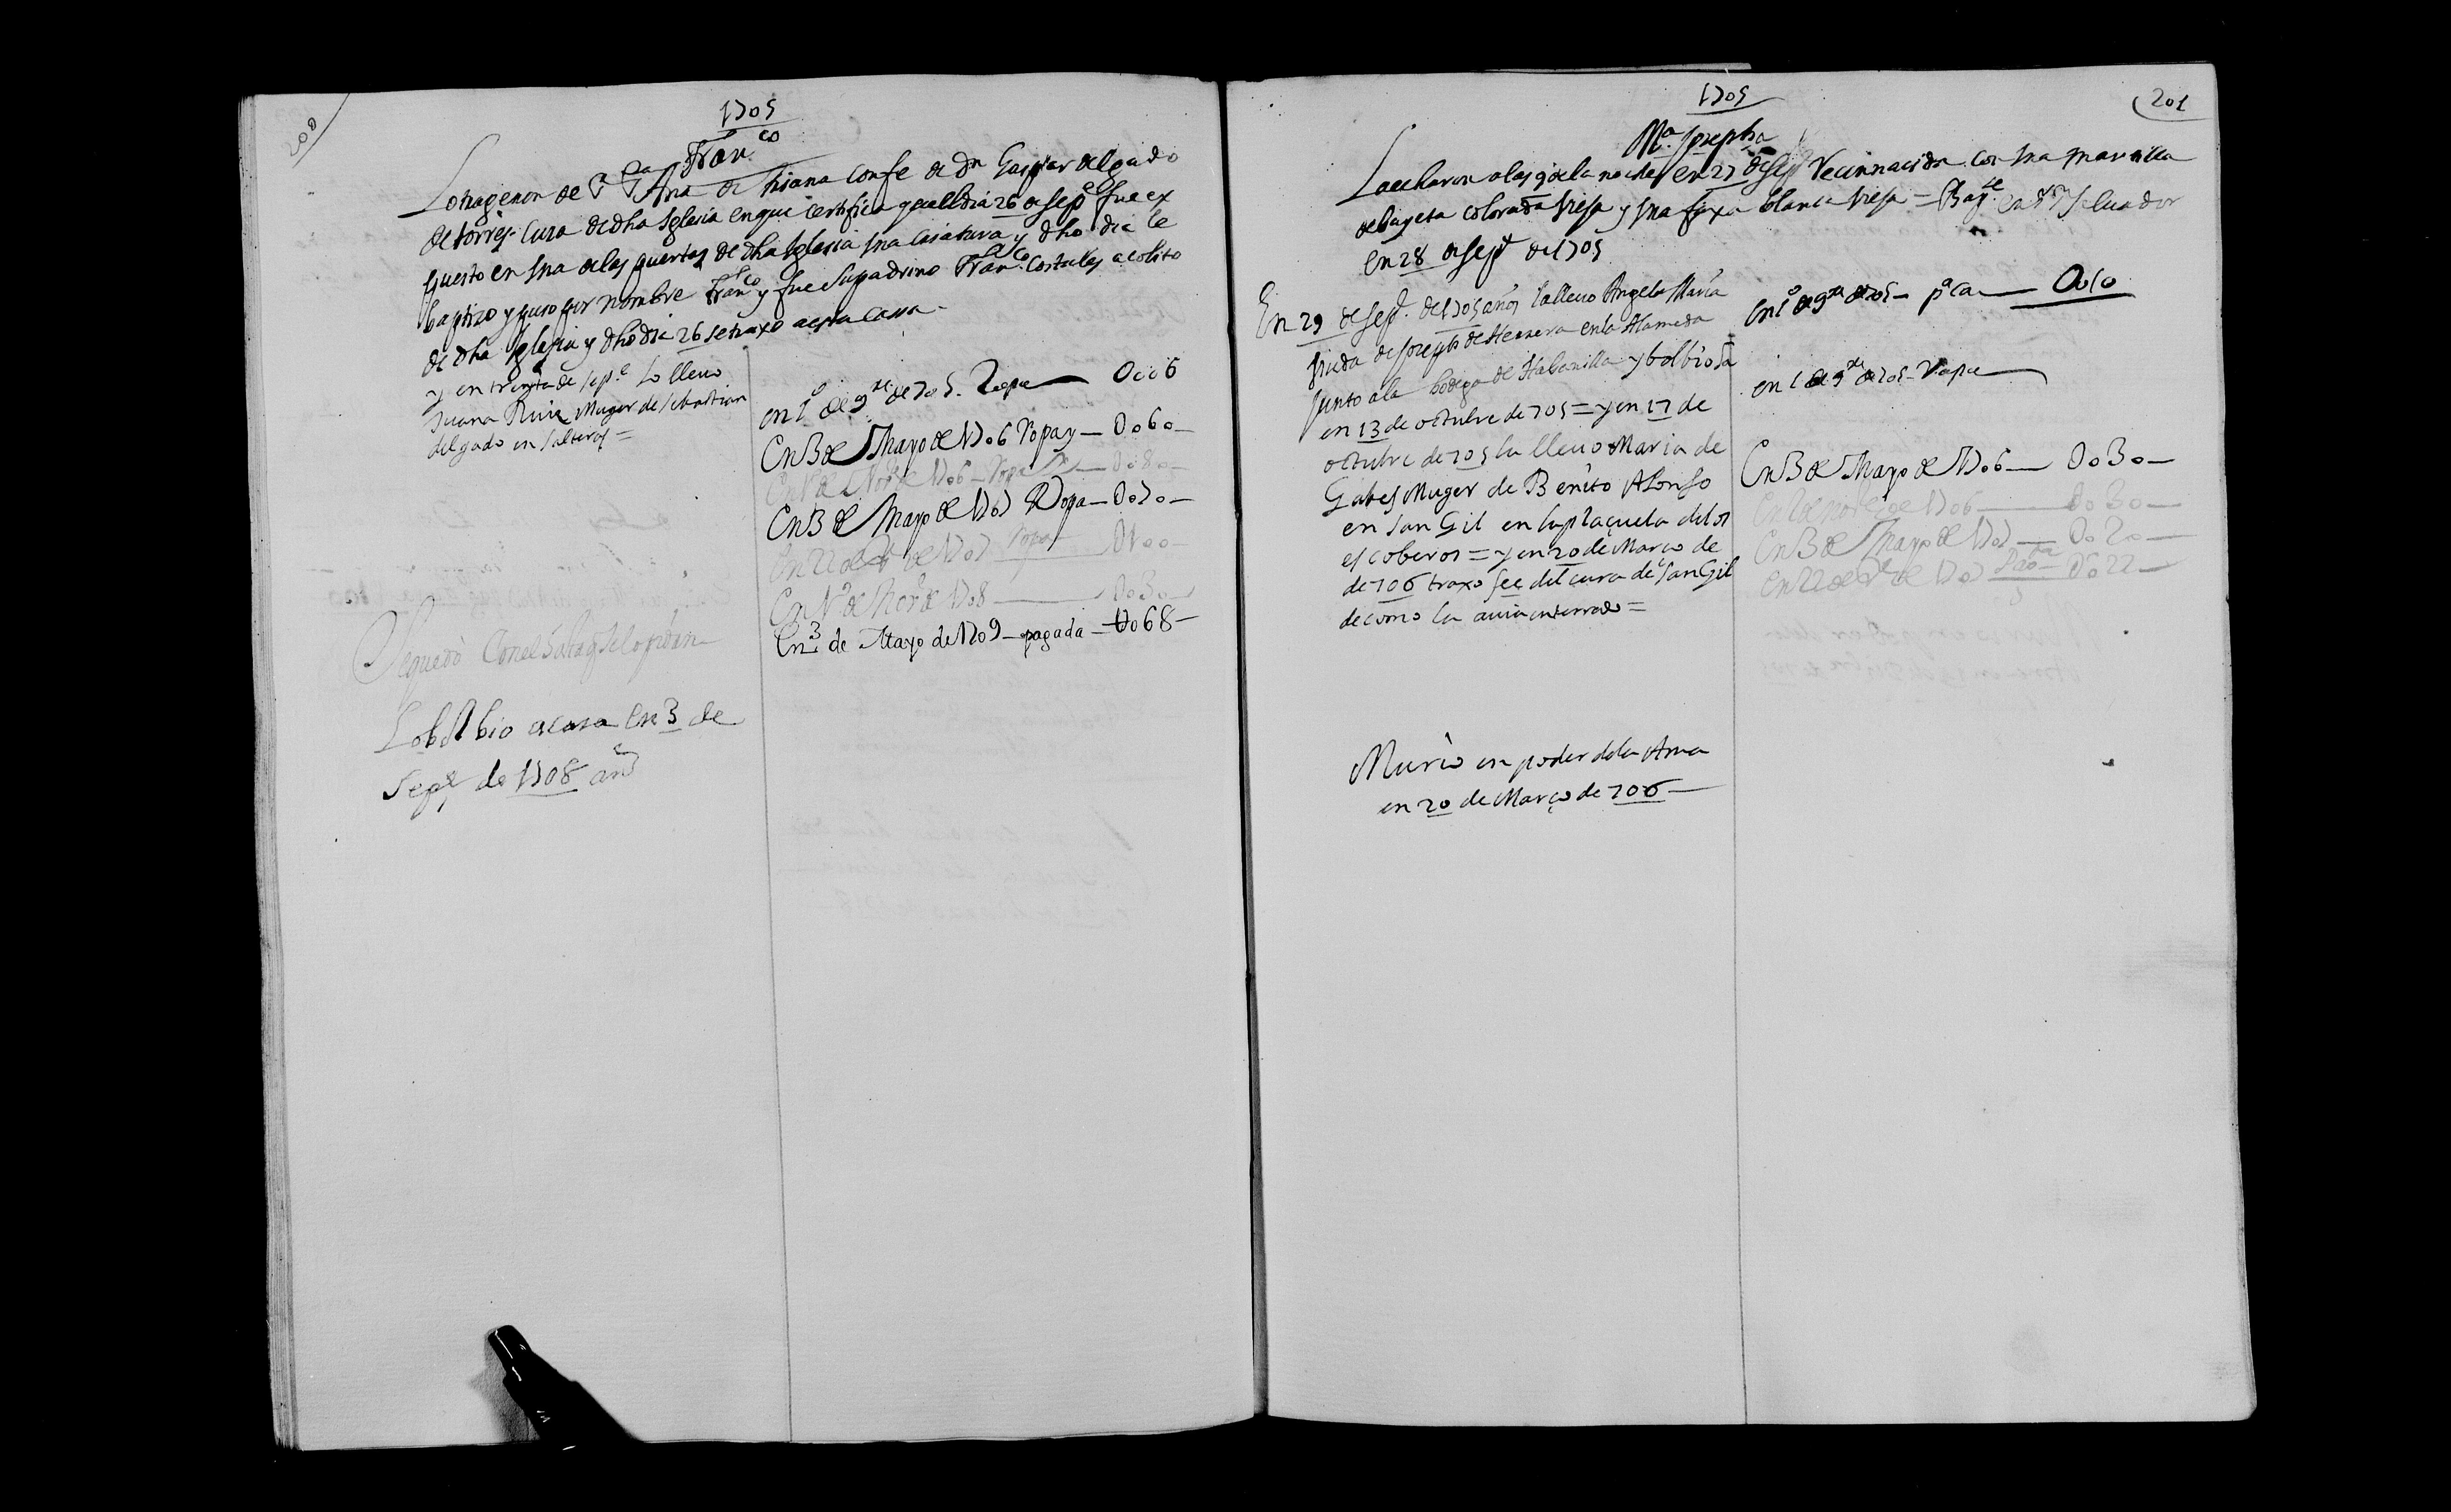 200
1705
Franco
Lo trageron de Sta Ana de triana con fe de Dn Gaspar delgado
de torres. Cura de dha Iglesia en que certifica q el dia 26 de sepe fue ex
puesto en una de las puertas de dha Iglesia una Criatura y dho dia le
baptizo y puso por nombre Franco y fue su padrino Franco Costales acolito
de dha Iglesia y dho dia 26 se traxo a esta Cassa -
y en treynta de sepe lo lleuo
Juana Ruiz Muger de sebastian
delgado en salteras =
en 1o de 9re de 705. Ropa — 0006
En 3 de Mayo de 1706 ropa y — 0060 —
En 1o de Nore de 1706 — ropa — 0080 —
En 3 de Mayo de 1707 Ropa — 0070 —
En 22 de de 1707 ropa — 0100 —
En 1o de Nore de 1708 — 0030 —
En 3 de Mayo de 1709 — pagada — 0068 —
Se quedò Con el
Lo bolbio a casa En 3 de
Sepe de 1708 ans
201
1705
Ma Josepha
La echaron a las 9 de la noche en 27 de sepe Recien nacida con una mantilla
de bayeta colorada viesa y una faxa blanca viesa = Bapce en Sn Saluador
En 28 de sepe de 1705
En 29 de sepe. de 1705 años la lleuo Angela Maria
viuda de Joseph de Herrera en la Alameda
Junto a la bodega de Habanilla y bolbiosa
en 13 de octubre de 705 = y en 17 de
octubre de 705 la lleuo Maria de
Gabes Muger de Benito Alonso
en san Gil en la plaçuela de los
escoberos = y en 20 de Março de
de 706 traxo fee del cura de san Gil
de como la auia enterrado =
en 1o de 9re de 705 — pa ca — 0010
en 1 de 9re de 705 — Ropa —
En 3 de Mayo de 1706 — 0030 —
En 1o de nore de 1706 — 0030 —
En 3 de Mayo de 1707 — 0020 —
En 22 de de 1707 — 0022 —
Murio en poder de la Ama
en 20 de Março de 706 —